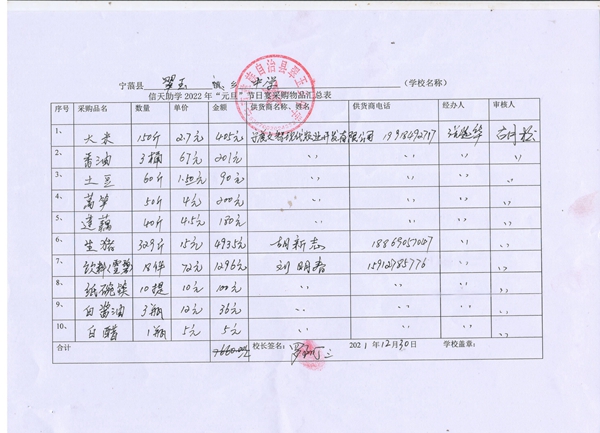 宁蒗县 翠玉 镇、乡 中学 (学校名称)
信天助学 2022 年“元旦”节日宴采购物品汇总表
序号 采购品名 数量 单价 金额 供货商名称、姓名 供货商电话 经办人 审核人
1、 大米 150斤 2.7元 405元
2、 香油 3桶 67元 201元 〃 〃 〃 〃
3、 土豆 60斤 1.50元 90元 〃 〃 〃 〃
4、 莴笋 50斤 4元 200元 〃 〃 〃 〃
5、 莲藕 40斤 4.5元 180元 〃 〃 〃 〃
6、 生猪 329斤 15元 4935元 胡新志 18869057047 〃 〃
7、 饮料(雪碧) 18件 72元 1296元 刘明春 15912785776 〃 〃
8、 纸碗筷 10提 10元 100元 〃 〃 〃 〃
9、 白酱油 3瓶 12元 36元 〃 〃 〃 〃
10、 白醋 1瓶 5元 5元 〃 〃 〃 〃
合计 校长签名: 2021年12月30日 学校盖章: